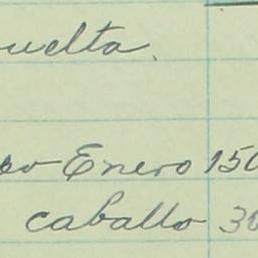 uelta.
Enero 150
caballo 30